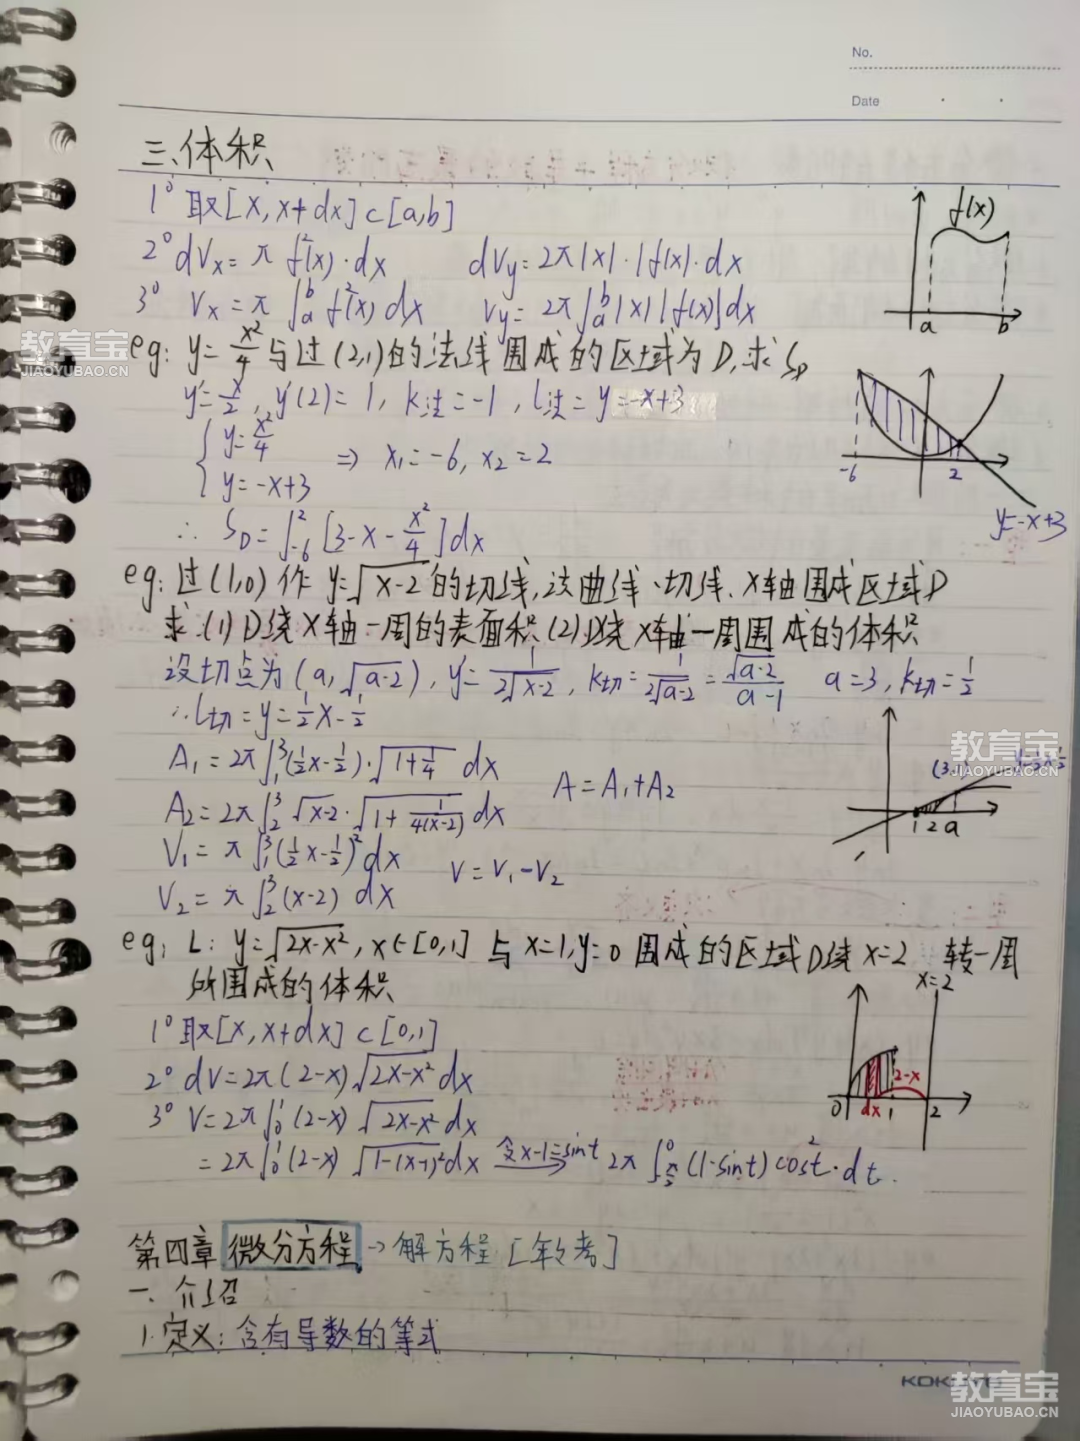 No.
Date
三、体积
1° 取[x, x+dx]⊂[a,b]
2° dVx = π f²(x)·dx  dVy = 2π|x|·|f(x)|·dx
3° Vx = π∫_a^b f²(x) dx  Vy = 2π∫_a^b |x||f(x)|dx
f(x)
a b
教育宝
JIAOYUBAO.CN
eg: y = x²/4 与过(2,1)的法线围成的区域为D,求S_D
y' = x/2, y'(2) = 1, k法 = -1, l法 = y = -x+3
{ y = x²/4
y = -x+3 ⇒ x₁ = -6, x₂ = 2
-6 2
y=-x+3
∴ S_D = ∫_{-6}^2 [3-x-x²/4]dx
eg: 过(1,0)作 y=√(x-2) 的切线,该曲线、切线、x轴围成区域D
求:(1)D绕x轴一周的表面积(2)D绕x轴一周围成的体积
设切点为(a, √(a-2)), y' = 1/(2√(x-2)), k切 = 1/(2√(a-2)) = √(a-2)/(a-1)  a=3, k切 = 1/2
∴ l切 = y = 1/2x - 1/2
A₁ = 2π∫_1^3 (1/2x - 1/2)·√(1+1/4) dx
A₂ = 2π∫_2^3 √(x-2)·√(1+1/(4(x-2))) dx  A = A₁+A₂
V₁ = π∫_1^3 (1/2x - 1/2)² dx
V₂ = π∫_2^3 (x-2) dx  V = V₁-V₂
教育宝
JIAOYUBAO.CN
1 2 a
eg: L: y=√(2x-x²), x∈[0,1] 与 x=1, y=0 围成的区域D绕 x=2 转一周
所围成的体积
1° 取[x, x+dx]⊂[0,1]
2° dV = 2π(2-x)√(2x-x²) dx
3° V = 2π∫_0^1 (2-x)√(2x-x²) dx
= 2π∫_0^1 (2-x)√(1-(x-1)²) dx 令x-1=sint→ 2π∫_{-π/2}^0 (1-sint) cos²t·dt.
x=2
2-x
0 dx 1 2
第四章 微分方程 → 解方程 [年年考]
一、介绍
1. 定义: 含有导数的等式
KOKUYO
教育宝
JIAOYUBAO.CN